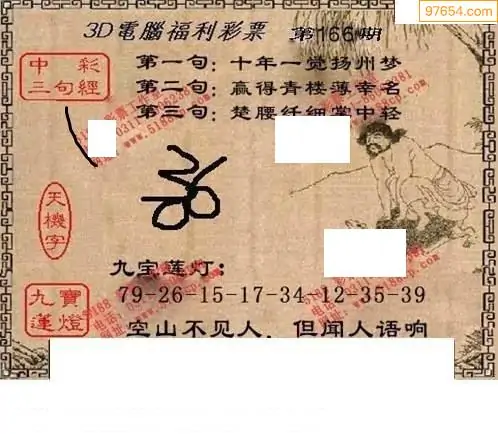 97654.com
3D電腦福利彩票 第166期
中彩
三句經
第一句：十年一觉扬州梦
第二句：赢得青楼薄幸名
第三句：楚腰纤细掌中轻
天機字
九宝莲灯：
79-26-15-17-34 12-35-39
九寶
蓮燈
空山不见人，但闻人语响